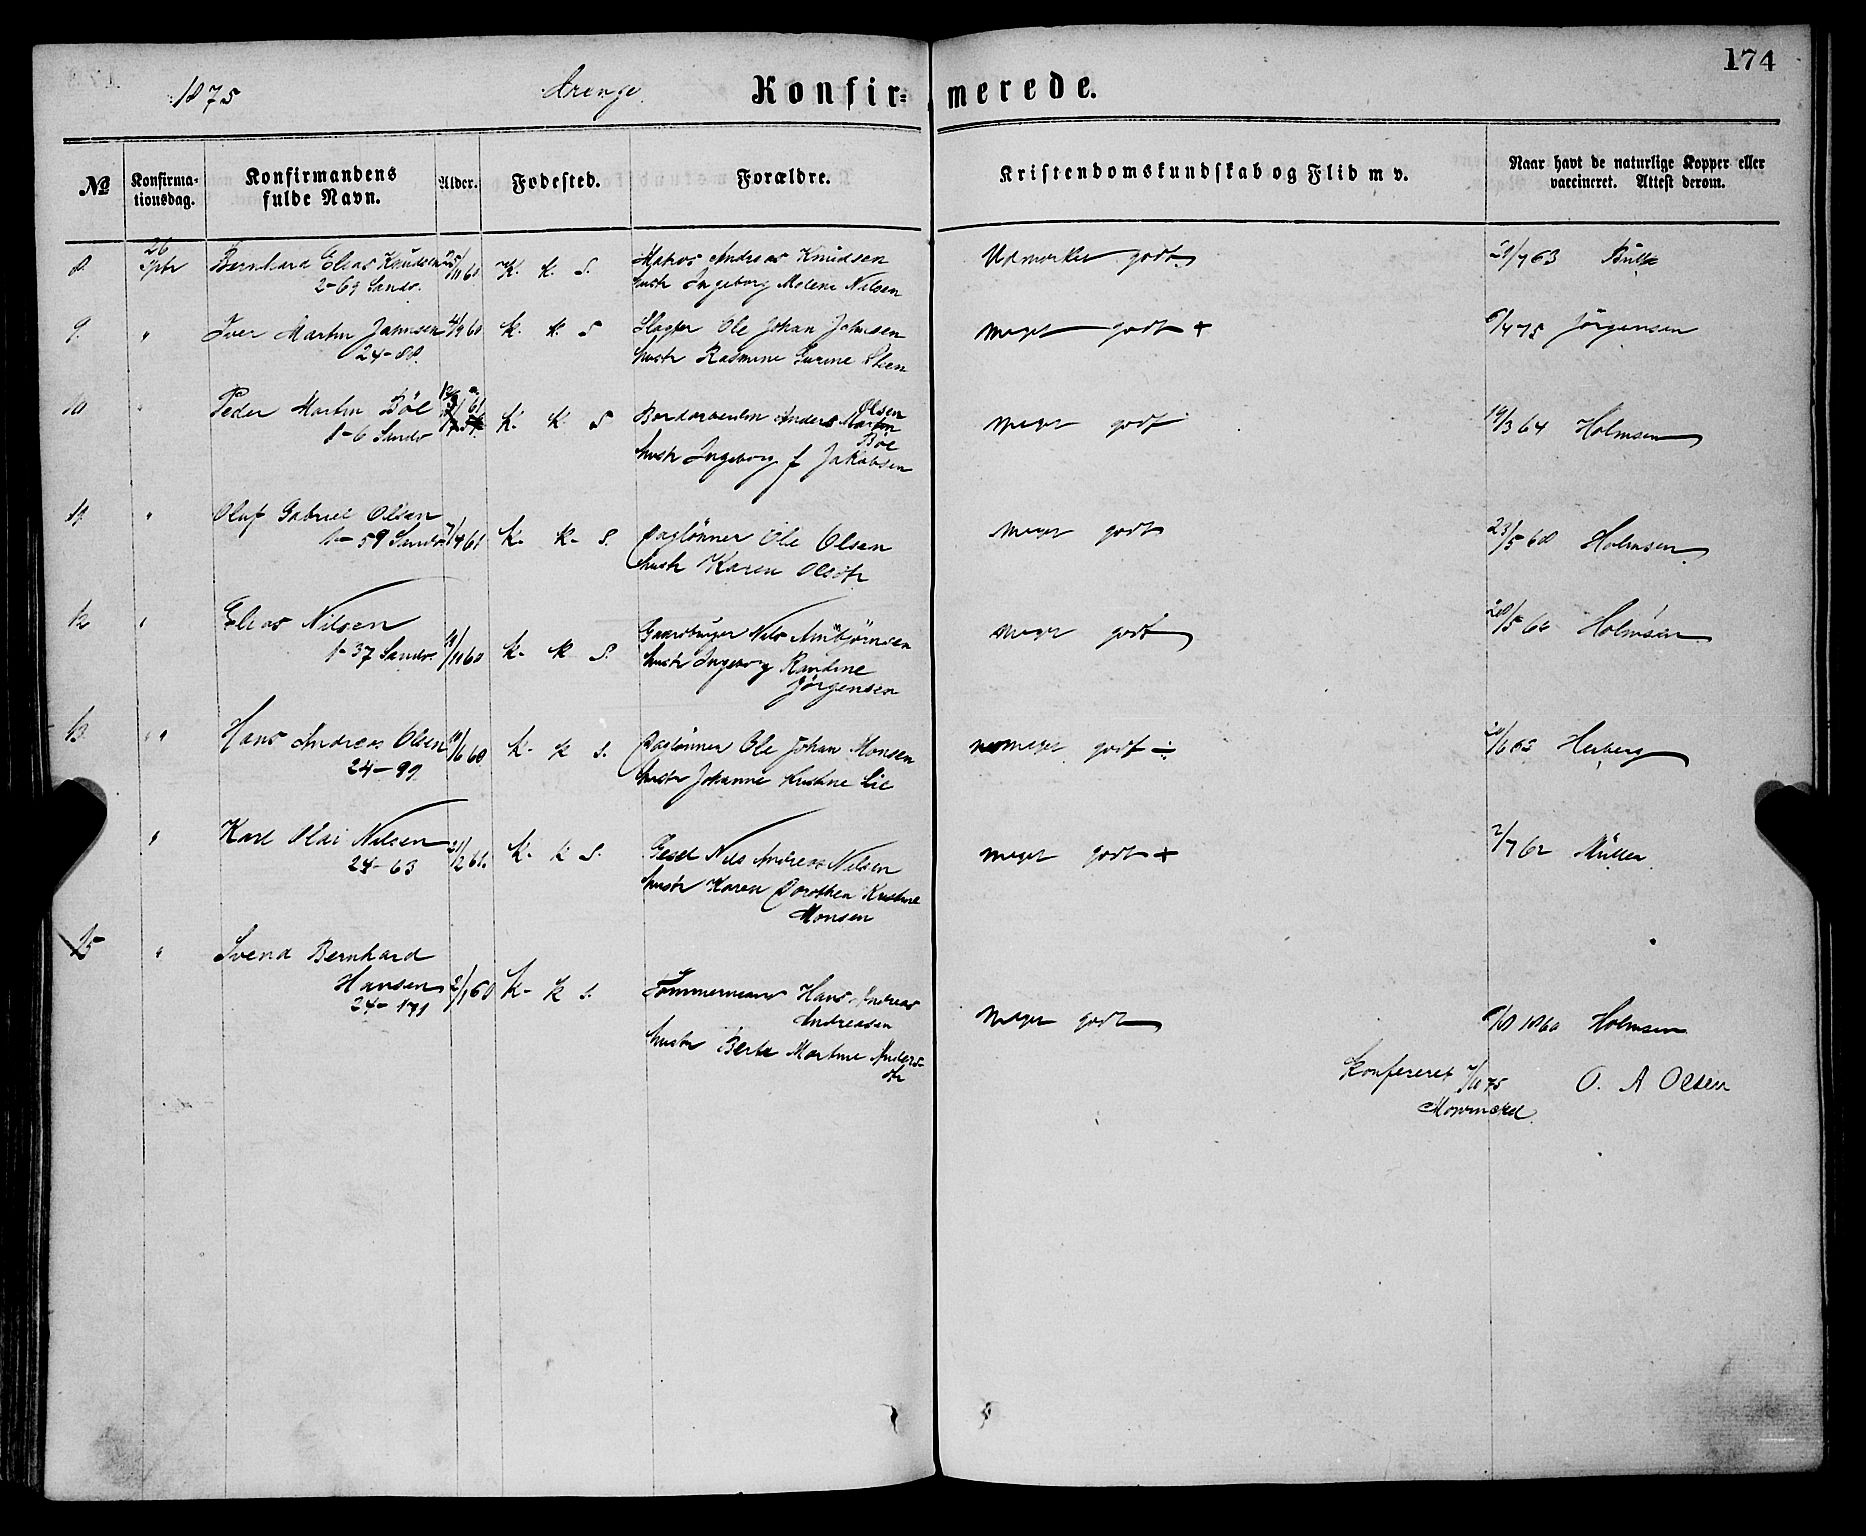 174
1875 Drenge. Konfir= merede.
№ Konfirma-tionsdag. Konfirmandens fulde Navn. Alder. Fodested. Forældre. Kristendomskundskab og Flid m v. Naar havt de naturlige Kopper eller vaccineret. Attest derom.
8. 26 Sptr Bernhard Elias Knudsen 25/11 60 K. K. S. Matros Andreas Knudsen Udmærket godt 29/7 63 Bull
2-69 Sandv. hustr Ingeborg Malene Nilsen
9. " Iver Martin Jahnsen 4/9 60 K. K. S Slagter Ole Johan Johnsen meget godt + 6/4 75 Jörgensen
24-88. hustr Rasmine Gurine
10 " Peder Martin Böe K. K S Bordarbeider Anders Martin Olsen Böe meget godt 19/3 64 Holmsen
1-6 Sandv hustr Ingeborg f Jakobsen
11 " Oluf Gabriel Olsen
1-59 Sandv 7/4 61 K. K. S. Daglönner Ole Olsen meget godt 23/5 68 Holmsen
hustr Karen Olsdtr
12 " Elias Nilsen
1-37 Sandv. /11 60 K. K. S. Gaardbruger Nils Arnbjörnsen meget godt 28/5 Holmsen
hustr Ingeborg Randine
Jörgensen
13. " Hans Andreas Olsen 10/6 60 K. K S. Daglönner Ole Johan Monsen meget godt ÷ /6 65 Herberg
24-99 hustr Johanne Kristine Lie
" Karl Olai Nilsen 21/2 61. K. K S. Gesel Nils Andreas Nilsen meget godt + 2/7 62 Müller
24-63 hustr Karen Dorothea Kristine
Monsen
15 " Svend Bernhard
Hansen 2/1 60 K. K S. Tömmermand Hans Andreas
24-171 Andreasen
meget godt 6/8 1860 Holmsen
hustr Berte Martine Anders-
dtr
Konfereret 75 O. A Olsen